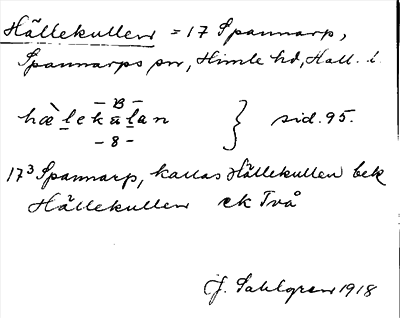 Hällekullen = 17 Spannarp,
Spannarps sn, Himle hd, Hall. l.
– B –
hæ̀lekulan } sid. 95.
– 8 –
17³ Spannarp, kallas Hällekullen bek
Hällekullen ck Två
J. Sahlgren 1918